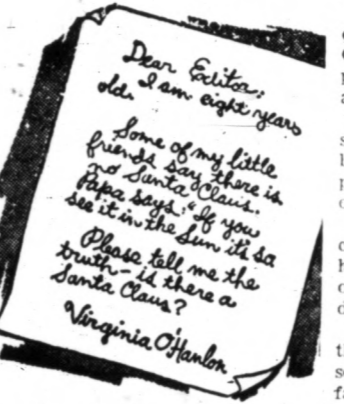 Dear Editor:
I am eight years
old.
Some of my little
friends say there is
no Santa Claus.
Papa says: "If you
see it in the Sun it's so
Please tell me the
truth — is there a
Santa Claus?
Virginia O'Hanlon